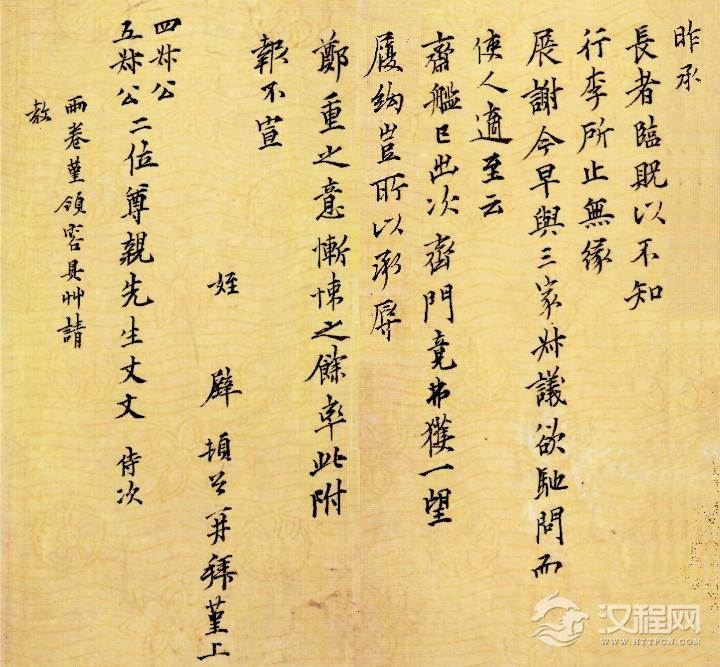 昨承
長者臨貺以不知
行李所止無緣
展謝今早與三家叔議欲馳問而
使人適至云
齋艦已出次齊門竟弗獲一望
履絢豈所以承辱
鄭重之意慚悚之餘率此附
報不宣
姪 璧 頓首再拜謹上
四叔公
五叔公二位尊親先生丈丈 侍次
兩卷謹領容具艸請
教
汉程网
HTTPCN.COM